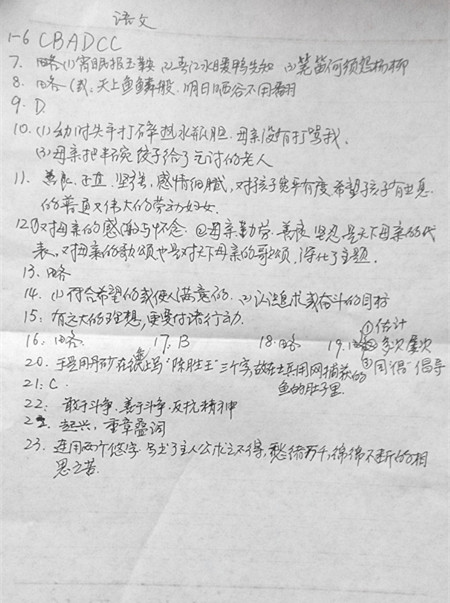 语文
1-6 CBADCC
7. 略 (1)宵眠抱玉鞍 (2)春江水暖鸭先知 (3)羌笛何须怨杨柳
8. 略 (或: 天上鱼鳞般, 明日晒谷不用翻
9. D
10. (1) 幼时失手打碎热水瓶胆. 母亲没有打骂我.
(2)母亲把半碗饺子给了乞讨的老人
11. 善良、正直、坚强, 感情细腻, 对孩子宽平有度 希望孩子有出息
的普通又伟大的劳动妇女.
12.①对母亲的感激与怀念. ②母亲勤劳、善良、坚忍是天下母亲的代
表, 对母亲的歌颂也是对天下母亲的歌颂, 深化了主题.
13. 略
14. (1) 符合希望的或使人满意的. (2) 认定追求或奋斗的目标
15. 有远大的理想, 更要付诸行动.
16. 略 17. B 18. 略 19. ①估计
②多次, 屡次
③同"倡" 倡导
20. 于是用丹砂在绸上写"陈胜王"三个字, 放在士兵用网捕获的
鱼的肚子里.
21. C
22. 敢于斗争、善于斗争、反抗精神
起兴, 重章叠词
23. 连用两个悠字, 写出了主人公求之不得, 愁绪万千, 绵绵不断的相
思之苦.